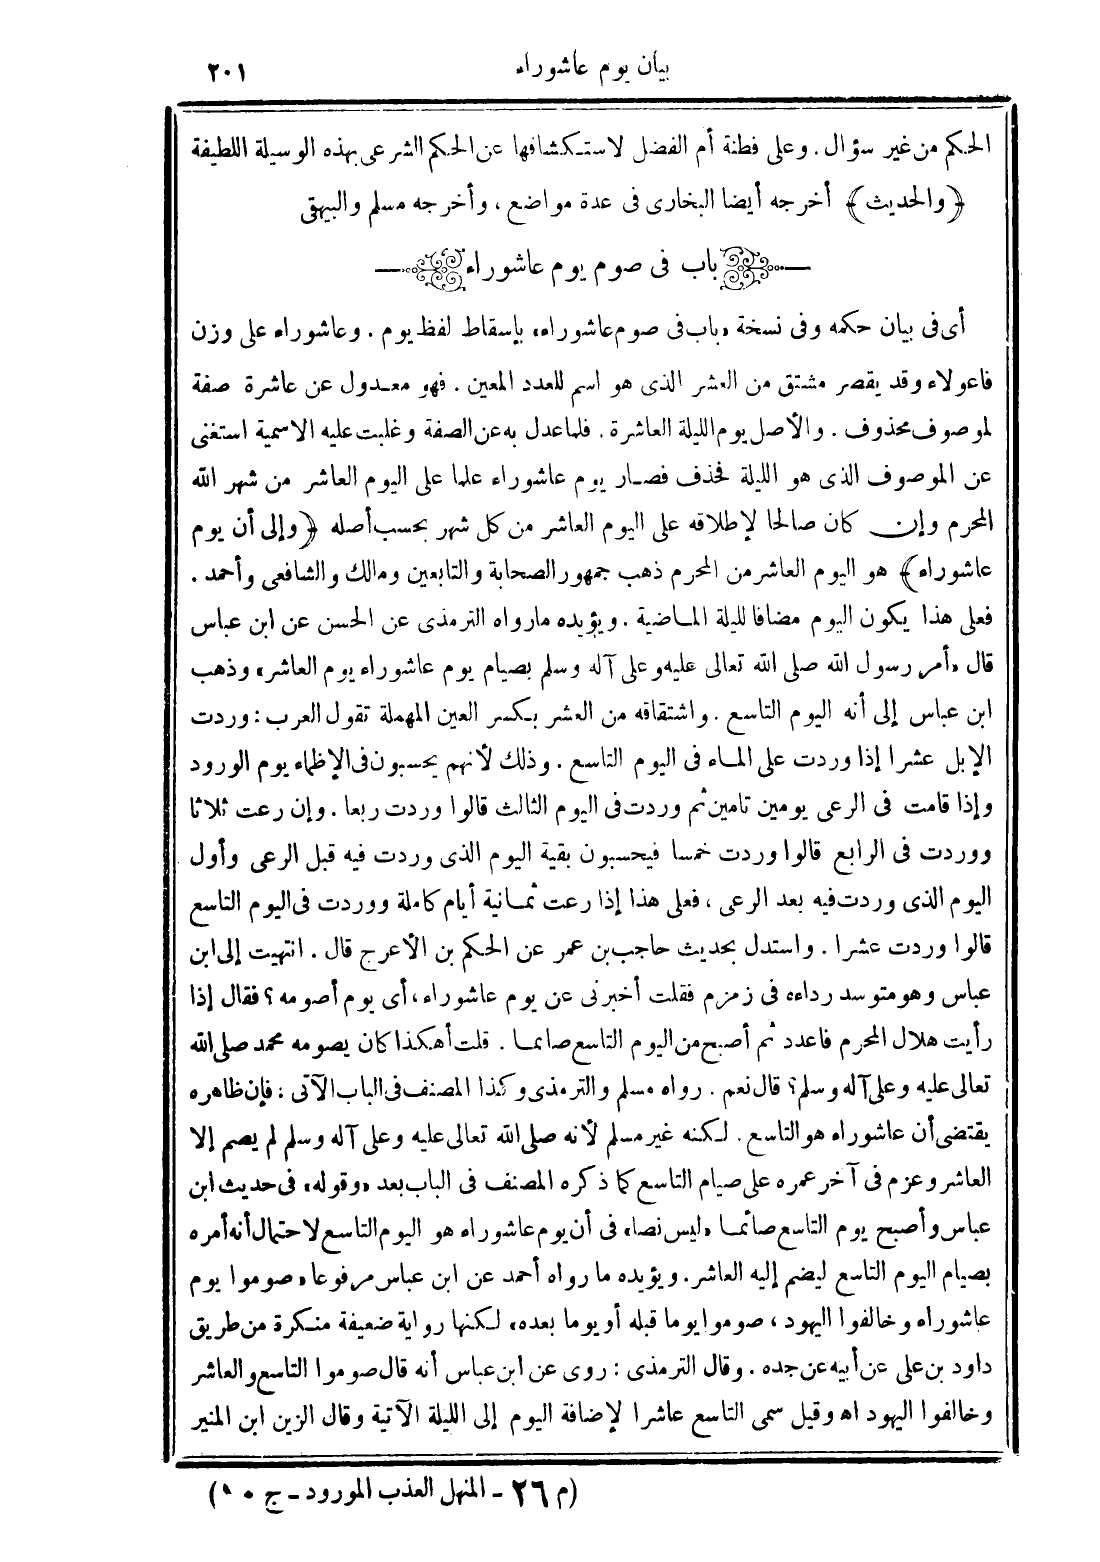 بيان يوم عاشوراء ٢٠١
الحكم من غير سؤال. وعلى فطنة أم الفضل لاستكشافها عن الحكم الشرعى بهذه الوسيلة اللطيفة
﴿والحديث﴾ أخرجه أيضا البخارى فى عدة مواضع، وأخرجه مسلم والبيهقى
باب فى صوم يوم عاشوراء
أى فى بيان حكمه وفى نسخة «باب فى صوم عاشوراء» بإسقاط لفظ يوم. وعاشوراء على وزن
فاعولاء وقد يقصر مشتق من العشر الذى هو اسم للعدد المعين. فهو معدول عن عاشرة صفة
لموصوف محذوف. والأصل يوم الليلة العاشرة. فلما عدل به عن الصفة وغلبت عليه الاسمية استغنى
عن الموصوف الذى هو الليلة فحذف فصار يوم عاشوراء علما على اليوم العاشر من شهر الله
المحرم وإن كان صالحا لإطلاقه على اليوم العاشر من كل شهر بحسب أصله ﴿وإلى أن يوم
عاشوراء﴾ هو اليوم العاشر من المحرم ذهب جمهور الصحابة والتابعين ومالك والشافعى وأحمد.
فعلى هذا يكون اليوم مضافا لليلة الماضية. ويؤيده مارواه الترمذى عن الحسن عن ابن عباس
قال «أمر رسول الله صلى الله تعالى عليه وعلى آله وسلم بصيام يوم عاشوراء يوم العاشر» وذهب
ابن عباس إلى أنه اليوم التاسع. واشتقاقه من العشر بكسر العين المهملة تقول العرب: وردت
الإبل عشرا إذا وردت على الماء فى اليوم التاسع. وذلك لأنهم يحسبون فى الإظماء يوم الورود
وإذا قامت فى الرعى يومين تامين ثم وردت فى اليوم الثالث قالوا وردت ربعا. وإن رعت ثلاثا
ووردت فى الرابع قالوا وردت خمسا فيحسبون بقية اليوم الذى وردت فيه قبل الرعى وأول
اليوم الذى وردت فيه بعد الرعى، فعلى هذا إذا رعت ثمانية أيام كاملة ووردت فى اليوم التاسع
قالوا وردت عشرا. واستدل بحديث حاجب بن عمر عن الحكم بن الأعرج قال. انتهيت إلى ابن
عباس وهو متوسد رداءه فى زمزم فقلت أخبرنى عن يوم عاشوراء، أى يوم أصومه؟ فقال إذا
رأيت هلال المحرم فاعدد ثم أصبح من اليوم التاسع صائما. قلت أهكذا كان يصومه محمد صلى الله
تعالى عليه وعلى آله وسلم؟ قال نعم. رواه مسلم والترمذى وكذا المصنف فى الباب الآتى: فإن ظاهره
يقتضى أن عاشوراء هو التاسع. لكنه غير مسلم لأنه صلى الله تعالى عليه وعلى آله وسلم لم يصم إلا
العاشر وعزم فى آخر عمره على صيام التاسع كما ذكره المصنف فى الباب بعد «وقوله» فى حديث ابن
عباس وأصبح يوم التاسع صائما «ليس نصا» فى أن يوم عاشوراء هو اليوم التاسع لاحتمال أنه أمره
بصيام اليوم التاسع ليضم إليه العاشر. ويؤيده ما رواه أحمد عن ابن عباس مرفوعا «صوموا يوم
عاشوراء وخالفوا اليهود، صوموا يوما قبله أو يوما بعده» لكنها رواية ضعيفة منكرة من طريق
داود بن على عن أبيه عن جده. وقال الترمذى: روى عن ابن عباس أنه قال صوموا التاسع والعاشر
وخالفوا اليهود اه وقيل سمى التاسع عاشرا لإضافة اليوم إلى الليلة الآتية وقال الزين ابن المنير
(م ٢٦ - المنهل العذب المورود - ج ١٠)